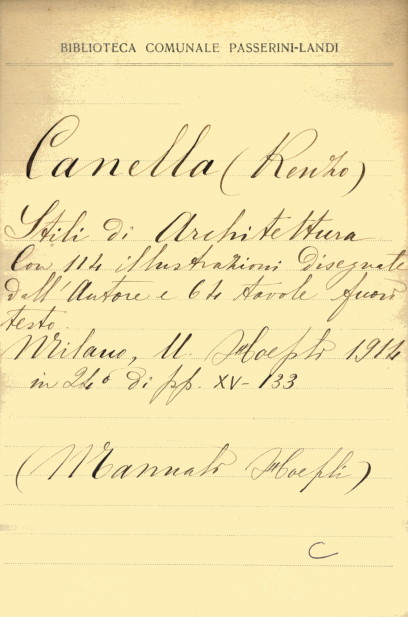 BIBLIOTECA COMUNALE PASSERINI-LANDI
Canella (Renzo)
Stili di Architettura
Con 114 illustrazioni disegnate
dall'Autore e 64 tavole fuori
testo
Milano, U. Hoepli 1914
in 24° di pp. XV-133
(Manuali Hoepli)
C